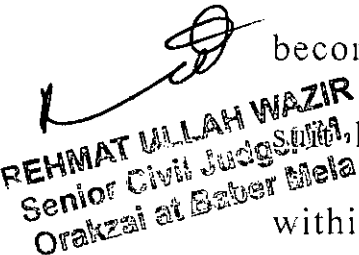 becor
REHMAT ULLAH WAZIR
Senior Civil Judge
Orakzai at Baber Mela
withi